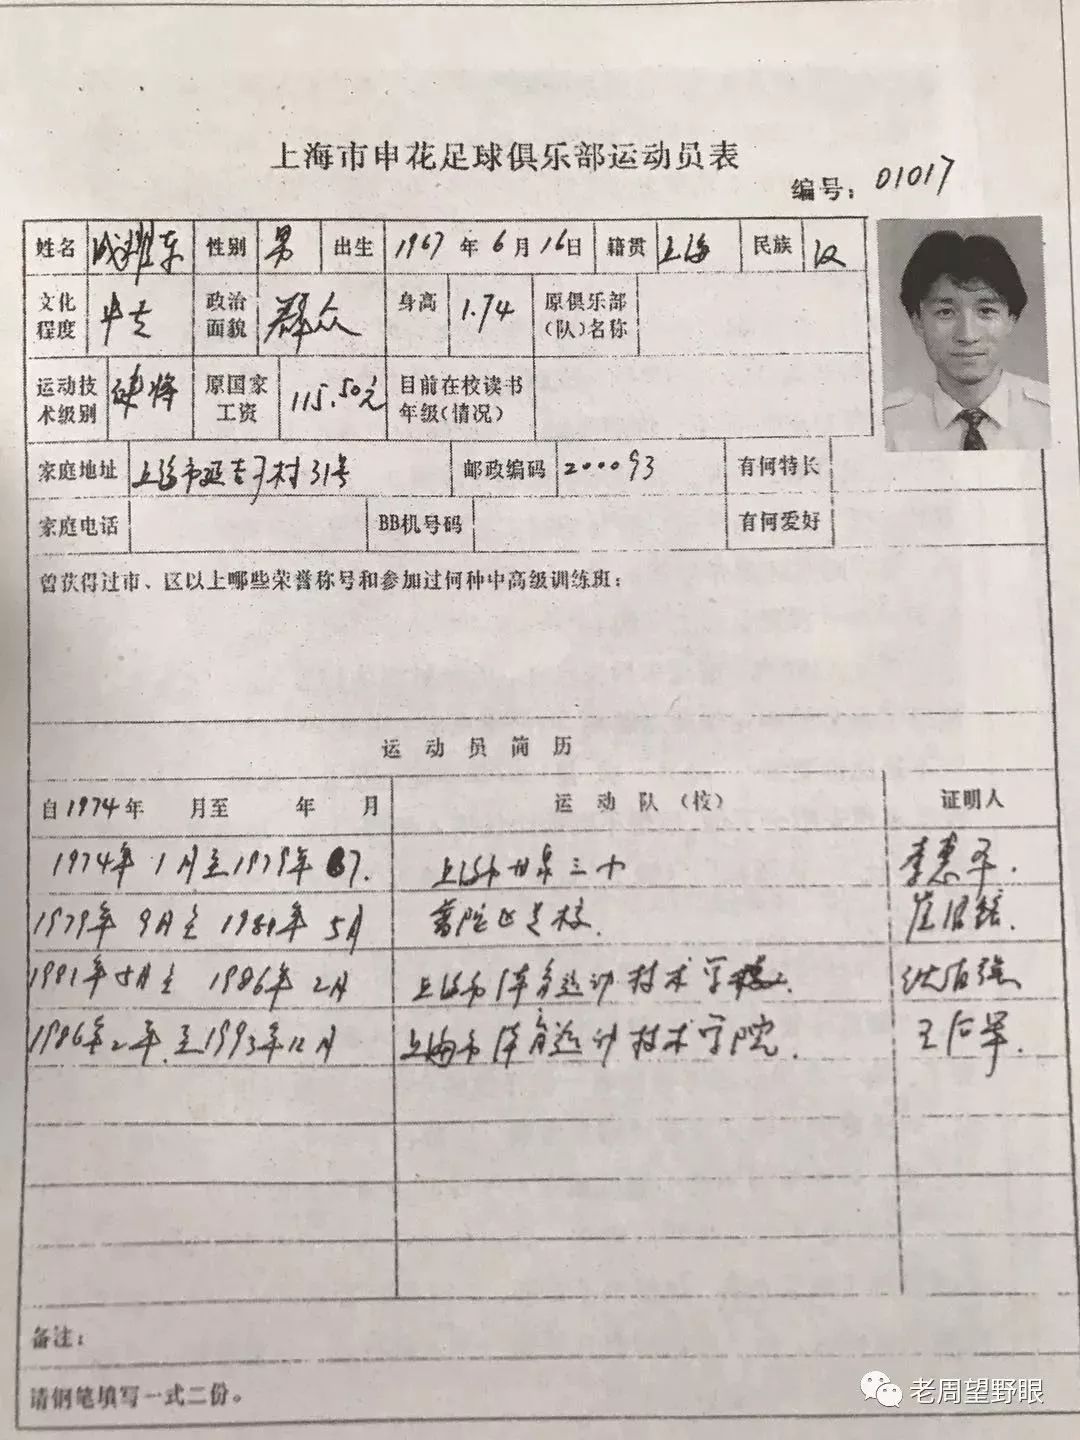 上海市申花足球俱乐部运动员表
编号：01017
姓名 成耀东 性别 男 出生 1967年6月16日 籍贯 上海 民族 汉
文化程度 中专 政治面貌 群众 身高 1.74 原俱乐部(队)名称
运动技术级别 健将 原国家工资 115.50元 目前在校读书年级(情况)
家庭地址 上海市延吉 村31号 邮政编码 200093 有何特长
家庭电话 BB机号码 有何爱好
曾获得过市、区以上哪些荣誉称号和参加过何种中高级训练班：
运动员简历
自1974年 月至 年 月 运动队（校） 证明人
1974年1月至1979年 7. 上海市 三小 李惠平.
1979年9月至1981年5月 普陀区 校.
1981年5月至1986年2月 上海市体育运动技术学校. 沈
1986年2年.至1993年12月 上海市体育运动技术学院. 王后军.
备注：
请钢笔填写一式二份。
老周望野眼